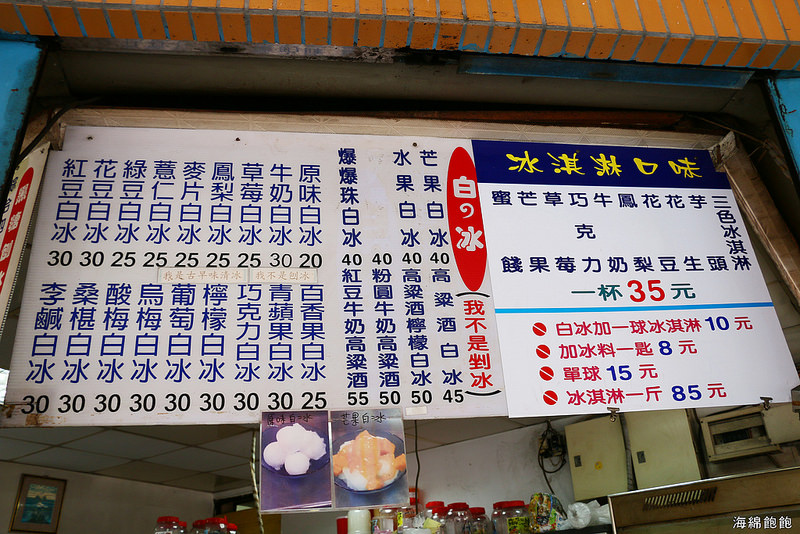 冰淇淋口味
三色冰淇淋
芋頭
花生
花豆
鳳梨
牛奶
巧克力
草莓
芒果
蜜餞
一杯35元
白冰加一球冰淇淋10元
加冰料一匙8元
單球15元
冰淇淋一斤85元
白の冰
(我不是剉冰)
芒果白冰 40
水果白冰 40
40
爆爆珠白冰 40
高粱酒白冰 45
高粱酒檸檬白冰 50
粉圓牛奶高粱酒 50
紅豆牛奶高粱酒 55
原味白冰 20
牛奶白冰 30
草莓白冰 25
鳳梨白冰 25
麥片白冰 25
薏仁白冰 25
綠豆白冰 25
花豆白冰 30
紅豆白冰 30
我是古早味清冰 我不是刨冰
百香果白冰 25
青蘋果白冰 30
巧克力白冰 30
檸檬白冰 30
葡萄白冰 30
烏梅白冰 30
酸梅白冰 30
桑椹白冰 30
李鹹白冰 30
原味白冰
芒果白冰
海綿飽飽